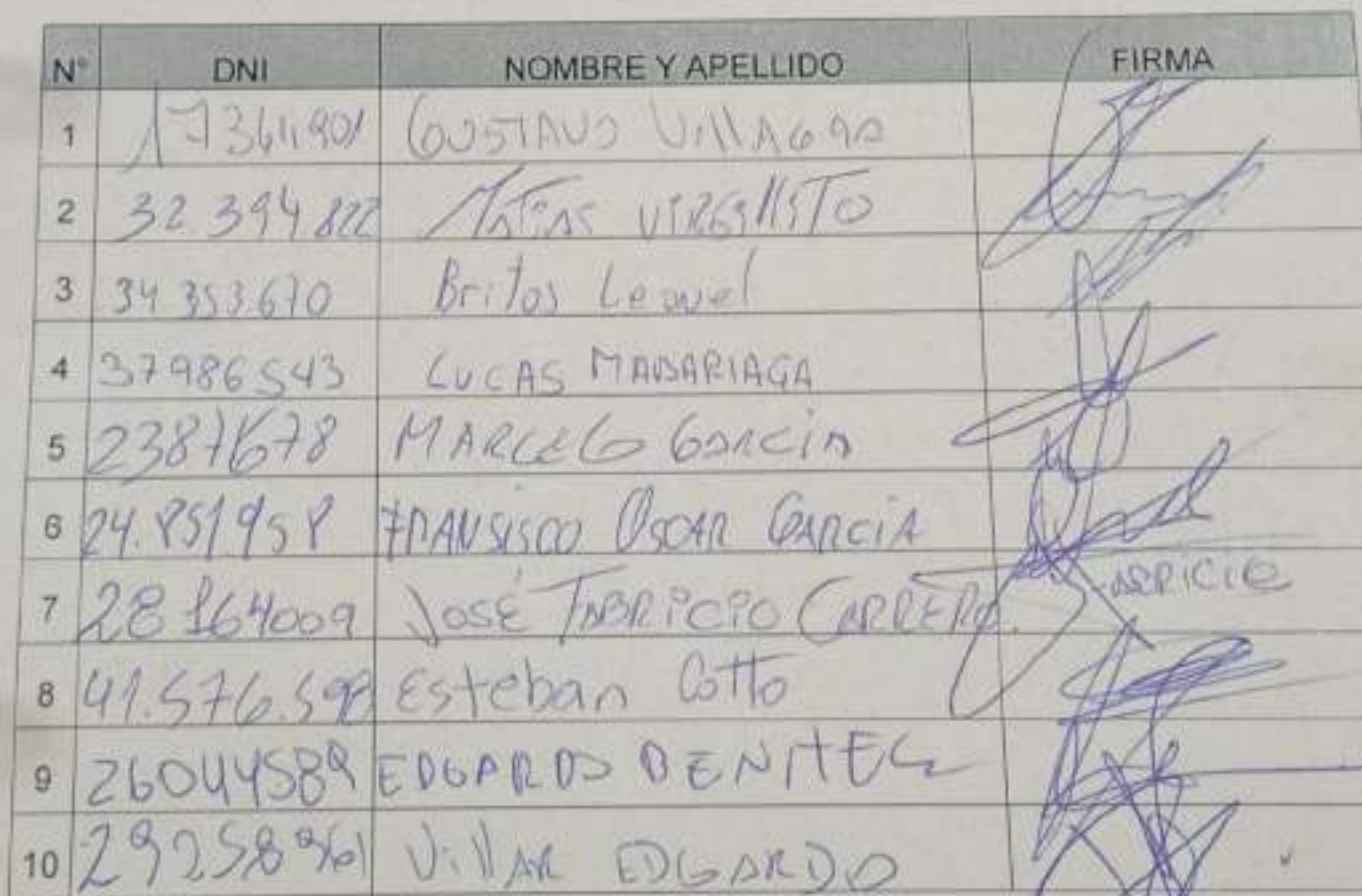 N° DNI NOMBRE Y APELLIDO FIRMA
1 17364901 GUSTAVO VillAGRA
2 32.394822 MATÍAS VIRGILLITO
3 34 353.670 Britos Leonel
4 37986543 LUCAS MADARIAGA
5 23871678 MARCELO GARCÍA
6 24.851958 FRANSISCO OSCAR GARCÍA
7 28164009 JOSÉ FABRICIO CARRERO
8 41.576.598 Esteban Cotto
9 26044589 EDGARDO BENITEZ
10 29258961 VillAR EDGARDO